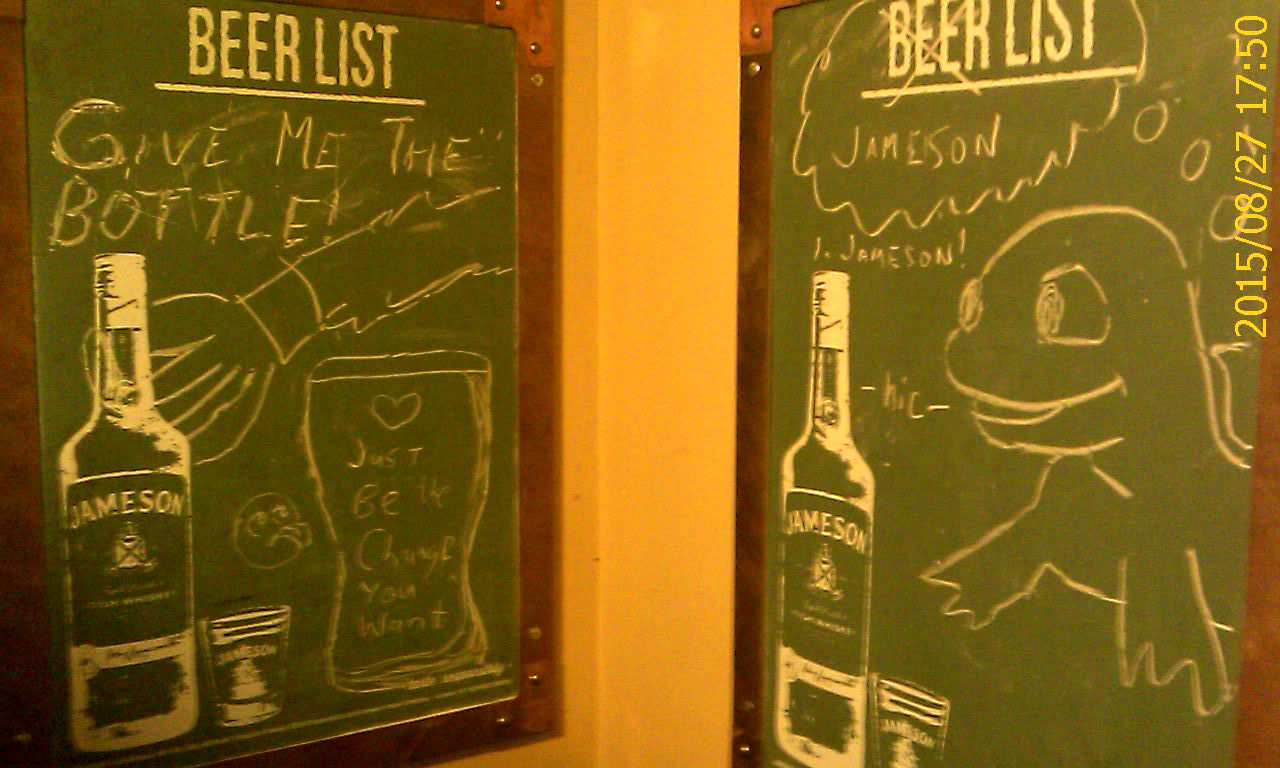 BEER LIST
GIVE ME THE
BOTTLE!
JAMESON
JAMESON
Just
Be the
Change
you
want
BEER LIST
JAMESON
1. JAMESON!
-hic-
JAMESON
JAMESON
2015/08/27 17:50